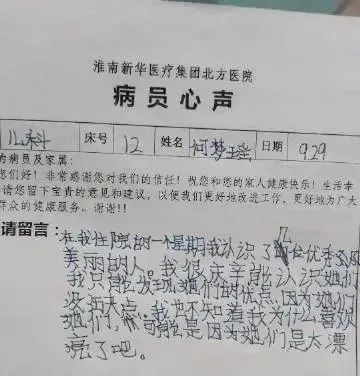 淮南新华医疗集团北方医院
病员心声
儿科 床号 12 姓名 何梦瑶 日期 929
为病员及家属:
您们好!非常感谢您对我们的信任!祝您和您的家人健康快乐!生活幸
请您留下宝贵的意见和建议,以便我们更好地改进工作,更好地为广大
群众的健康服务。谢谢!!
请留言:在我住院的一个星期我认识了几位优秀又
美丽的人。我很庆幸能认识她们
我只能发现她们的优点,因为她们
没有缺点。我也不知道我为什么喜欢
她们,可能是因为她们是太漂
亮了吧。